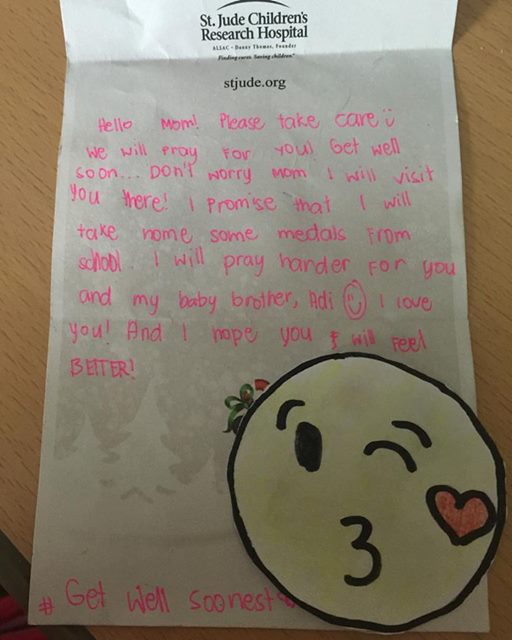 St. Jude Children's
Research Hospital
ALSAC • Danny Thomas, Founder
Finding cures. Saving children.
stjude.org
Hello Mom! Please take care
We will pray for you! Get well
soon... Don't worry mom I will visit
you there! I promise that I will
take home some medals from
school. I will pray harder for you
and my baby brother, Adi I love
you! And I hope you will feel
BETTER!
# Get Well Soonest